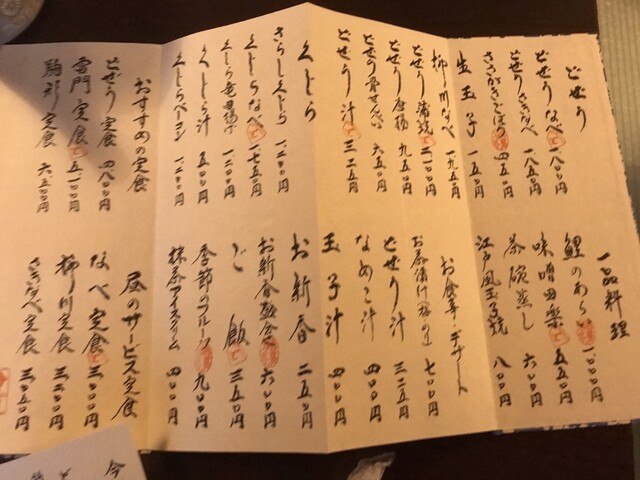 どぜう
どぜうなべ 一、八〇〇円
どぜうさきなべ 一、八五〇円
ささがきごぼう 四五〇円
生玉子 一五〇円
柳川なべ 一、九五〇円
どぜう蒲焼 二、一〇〇円
どぜう唐揚 九五〇円
どぜう骨せんべい 六五〇円
どぜう汁 三二五円
くじら
さらしくじら 一、二〇〇円
くじらなべ 一、七五〇円
くじら竜田揚げ 一、二〇〇円
くじら汁 五〇〇円
くじらベーコン 一、二〇〇円
おすすめの定食
どぜう定食 四、八〇〇円
雷門定食 五、一〇〇円
駒形定食 六、五五〇円
一品料理
鯉のあらい 一、〇〇〇円
味噌田楽 五五〇円
茶碗蒸し 六〇〇円
江戸風玉子焼 八〇〇円
お食事・デザート
お茶漬け(梅・のり) 七〇〇円
どぜう汁 三二五円
なめこ汁 四〇〇円
玉子汁 四〇〇円
お新香 二五〇円
お新香盛合せ 六〇〇円
ご飯 三五〇円
季節のフルーツ 九〇〇円
抹茶アイスクリーム 四〇〇円
昼のサービス定食
なべ定食 三、〇〇〇円
柳川定食 三、二〇〇円
さきなべ定食 三、〇五〇円
今